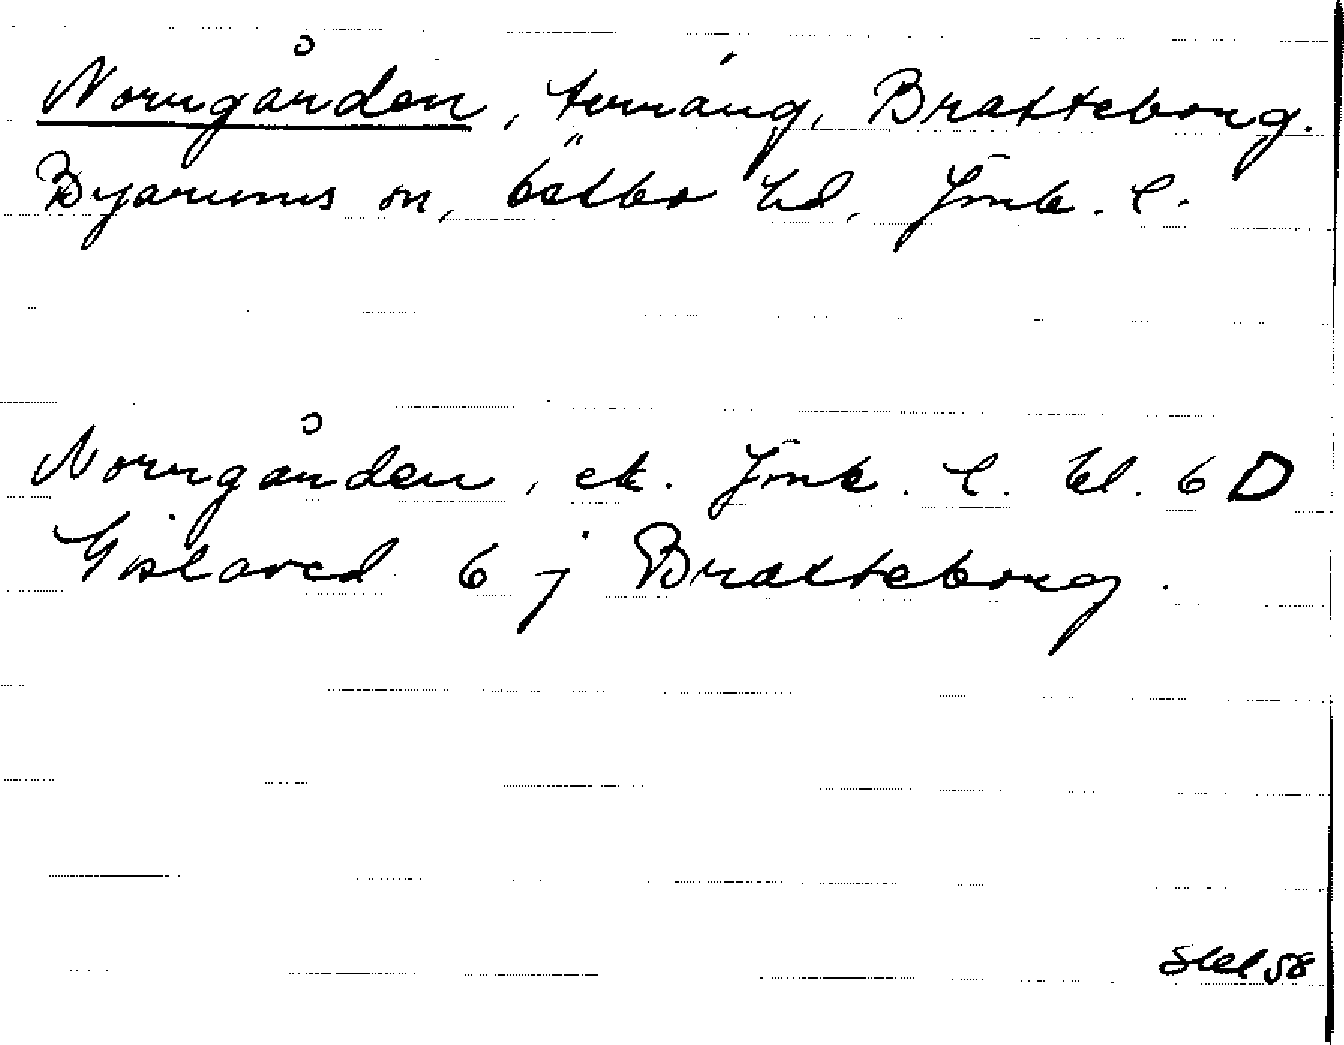 Norrgården, terräng, Bratteborg.
Byarums sn, Östbo hd, Jönk. l.
Norrgården, ek. Jönk. l. bl. 6 D
Gislaved 6 j Bratteborg.